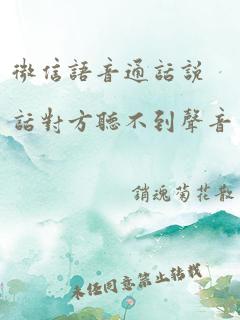 微信語音通話說
話對方聽不到聲音
銷魂菊花散
未經同意禁止轉載